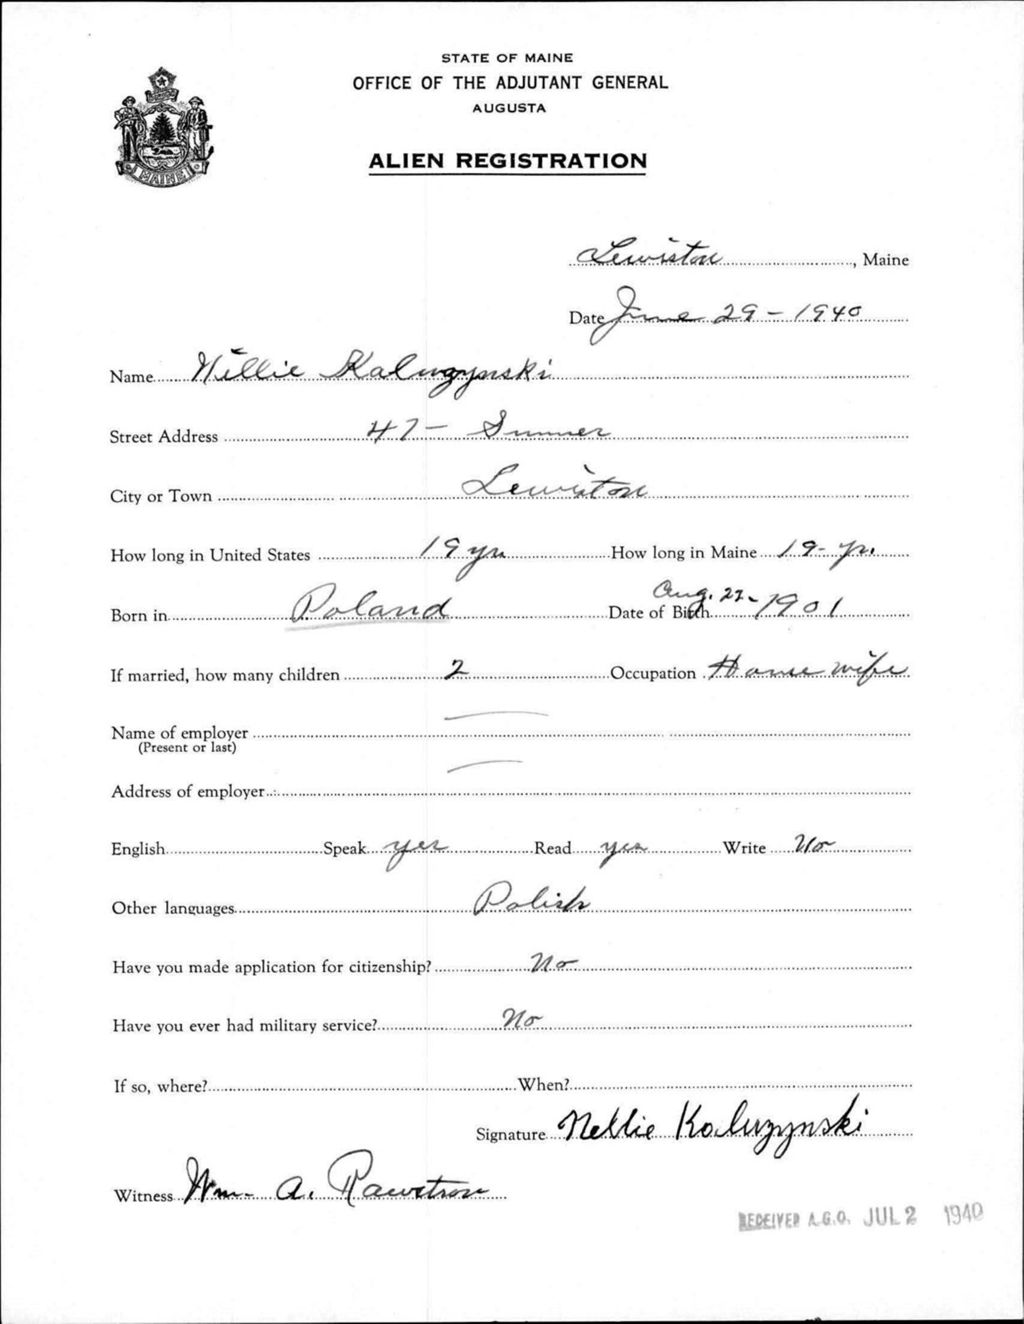 STATE OF MAINE
OFFICE OF THE ADJUTANT GENERAL
AUGUSTA
ALIEN REGISTRATION
MAINE
Lewiston, Maine
Date June 29 - 1940
Name Nillie Kaluzynski
Street Address 47 - Summer
City or Town Lewiston
How long in United States 19 yrs How long in Maine 19 - yr.
Born in Poland Date of Birth Aug. 27 - 1901
If married, how many children 2 Occupation House wife
Name of employer
(Present or last)
Address of employer
English Speak yes Read yes Write No
Other languages Polish
Have you made application for citizenship? No
Have you ever had military service? No
If so, where? When?
Signature Nellie Kaluzynski
Witness Wm. A. Rawstron
RECEIVED A.G.O. JUL 2 1940